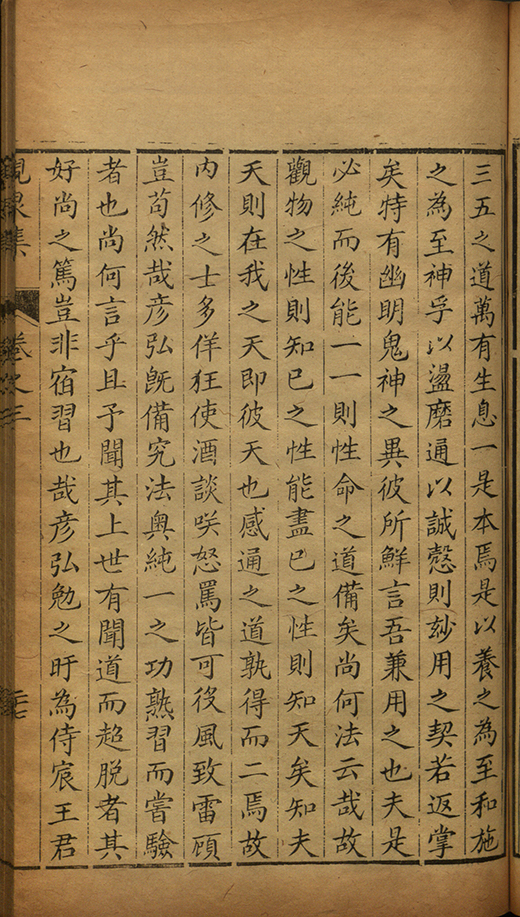 三五之道萬有生息一是本焉是以養之為至和施
之為至神乎以盪磨通以誠慤則玅用之契若返掌
矣特有幽明鬼神之異彼所鮮言吾兼用之也夫是
必純而後能一一則性命之道備矣尚何法云哉故
觀物之性則知已之性能盡已之性則知天矣知夫
天則在我之天即彼天也感通之道孰得而二焉故
内修之士多佯狂使酒談咲怒罵皆可役風致雷頋
豈苟然哉彦弘旣備究法奥純一之功熟習而嘗驗
者也尚何言乎且予聞其上世有聞道而超脱者其
好尚之篤豈非宿習也哉彦弘勉之旴為侍宸王君
峴泉集 卷之三